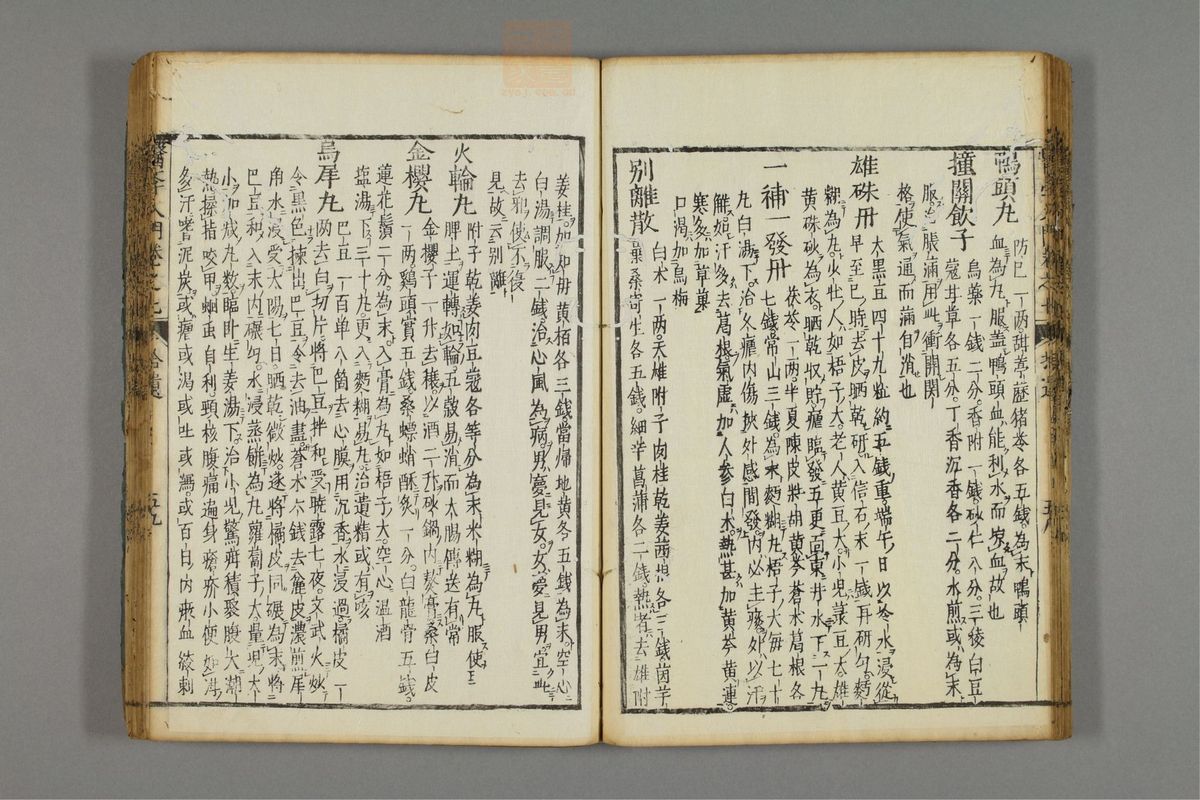 鴨頭丸
防巳一兩甜葶藶猪苓各五錢為末鴨頭
血為丸服盖鴨頭血能利水而
血故也
撞關飲子
烏藥一錢二分香附一錢砂仁八分三稜白豆
蔻甘草各五分丁香沉香各二分水煎或為末
服
脹滿用此衝開關
格使氣通而滿自消也
雄硃丹
大黑豆四十九粒約五錢重端午日以冷水浸從
早至巳時去皮晒乾研入信石末一錢再研勻麪
糊為丸火牡人如梧子大老人黄豆大小兒菉豆大雄
黄硃砂為衣晒乾収貯瘧臨發五更向東井水下一丸
一補一發丹
茯苓一兩半夏陳皮柴胡黄芩蒼术葛根各
七錢常山三錢為末麪糊丸梧子大毎七十
丸白湯下治久瘧内傷挾外感間發内必主痰外以汗
解如汗多去葛根氣虚加人参白术熱甚加黄芩黄連
寒多加草菓
口渇加烏梅
別離散
白术一兩天雄附子肉桂乾姜茜根各三錢茵芋
葉桑寄生各五錢細辛菖蒲各二錢熱者去雄附
姜桂加知母黄栢各三錢當帰地黄各五錢為末空心
白湯調服二錢治心風為病男夢見女女夢見男宜此
去邪使不復
見故云別離
火輪丸
附子乾姜肉豆蔻各等分為末米糊為丸服使
脾土運轉如輪五穀易消而大腸傳送有常
金櫻丸
金櫻子一升去穰以酒二升砂鍋内熬膏桑白皮
一兩鷄頭實五錢桑螵蛸酥炙一分白龍骨五錢
蓮花鬚二分為末入膏為丸如梧子大空心溫酒
塩湯下三十丸更入麪糊易丸治遺精或有咳
烏犀丸
巴豆一百単八箇去心膜用沉香水浸過橘皮一
兩去白切片將巴豆拌和受暁露七夜文武火炒
令黑色揀出巴豆令去油盡蒼术六錢去麁皮濃煎犀
角水浸受太陽七日晒乾微炒遂將橘皮同碾為末將
巴豆和入末内碾勻水浸蒸餅為丸蘿蔔子大量兒大
小加減丸数臨卧生姜湯下治小児驚疳積聚腹大潮
熱揉指咬甲蛔虫自利頸核腹痛遍身瘡疥小便如泔
多汗嗜泥炭或瘧或渇或吐或瀉或百日内痢血